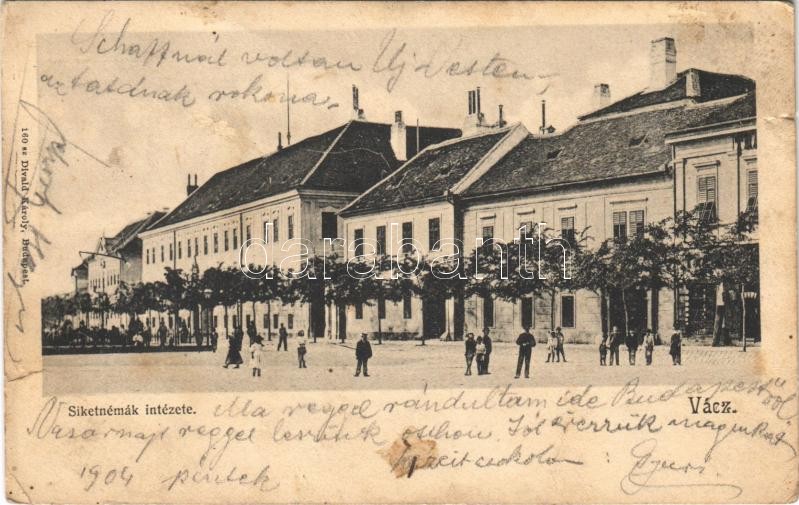 Schaffnál voltam Uj Pesten,
az tatádnak rokona
160 sz Divald Károly, Budapest.
darabanth
Siketnémák intézete.
Vácz.
Ma reggel rándultam ide Budapest
ről
Vasárnap reggel leszünk otthon Jól érezzük magunkat
1904 péntek
csókolom : Gyuri